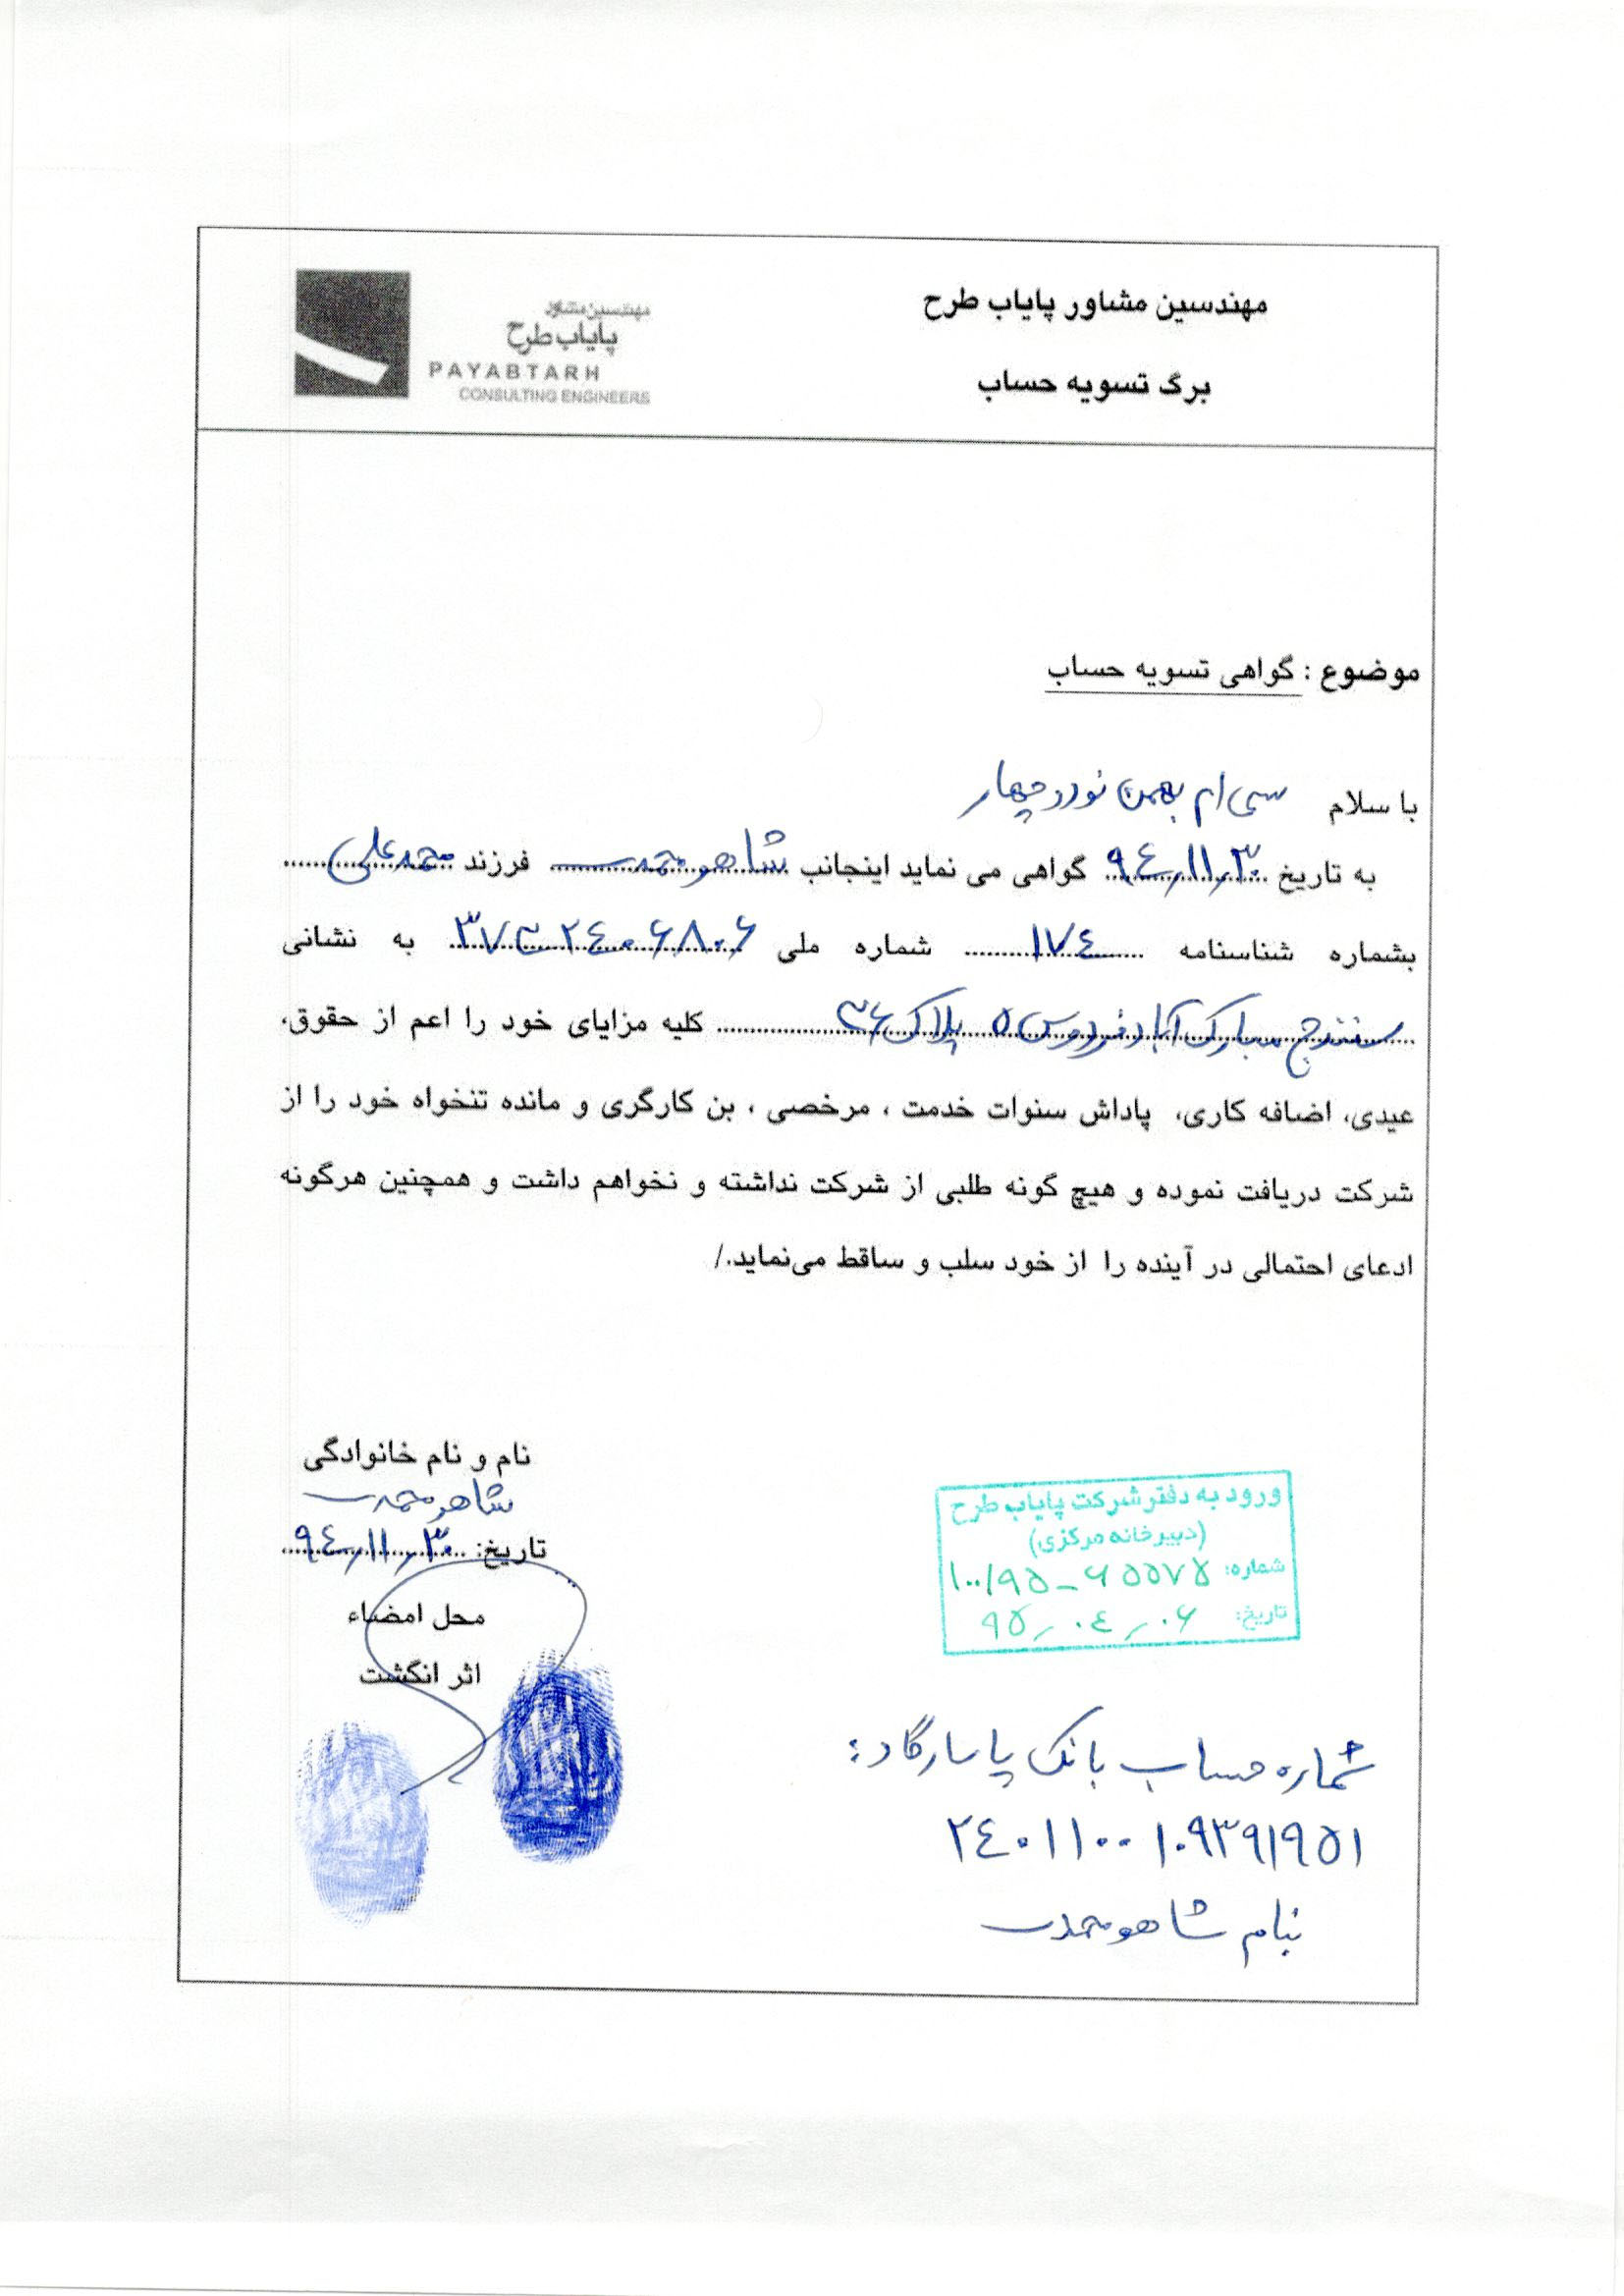 مهندسین مشاور پایاب طرح
برگ تسویه حساب
مهندسین مشاور
پایاب طرح
PAYABTARH
CONSULTING ENGINEERS
موضوع : گواهی تسویه حساب
با سلام سی ام بهمن نود و چهار
به تاریخ ۹٤/۱۱/۳۰ گواهی می نماید اینجانب شاهو محمدی فرزند محمدعلی
بشماره شناسنامه ۱۷٤ شماره ملی ۳۷۳۲٤۰۶۸۰۶ به نشانی
سنندج مبارک آباد فردوس ۵ پلاک ۳۶ کلیه مزایای خود را اعم از حقوق،
عیدی، اضافه کاری، پاداش سنوات خدمت ، مرخصی ، بن کارگری و مانده تنخواه خود را از
شرکت دریافت نموده و هیچ گونه طلبی از شرکت نداشته و نخواهم داشت و همچنین هرگونه
ادعای احتمالی در آینده را از خود سلب و ساقط می‌نماید./
نام و نام خانوادگی
شاهو محمدی
تاریخ: ۹٤/۱۱/۳۰
محل امضاء
اثر انگشت
ورود به دفتر شرکت پایاب طرح
(دبیرخانه مرکزی)
شماره: ۱۰۰/۹۵-۶۵۵۷۵
تاریخ: ۹۵/۰٤/۰۶
شماره حساب بانک پاسارگاد:
۲٤۰۱۱۰۰۱۰۹۳۹۱۹۵۱
بنام شاهو محمدی